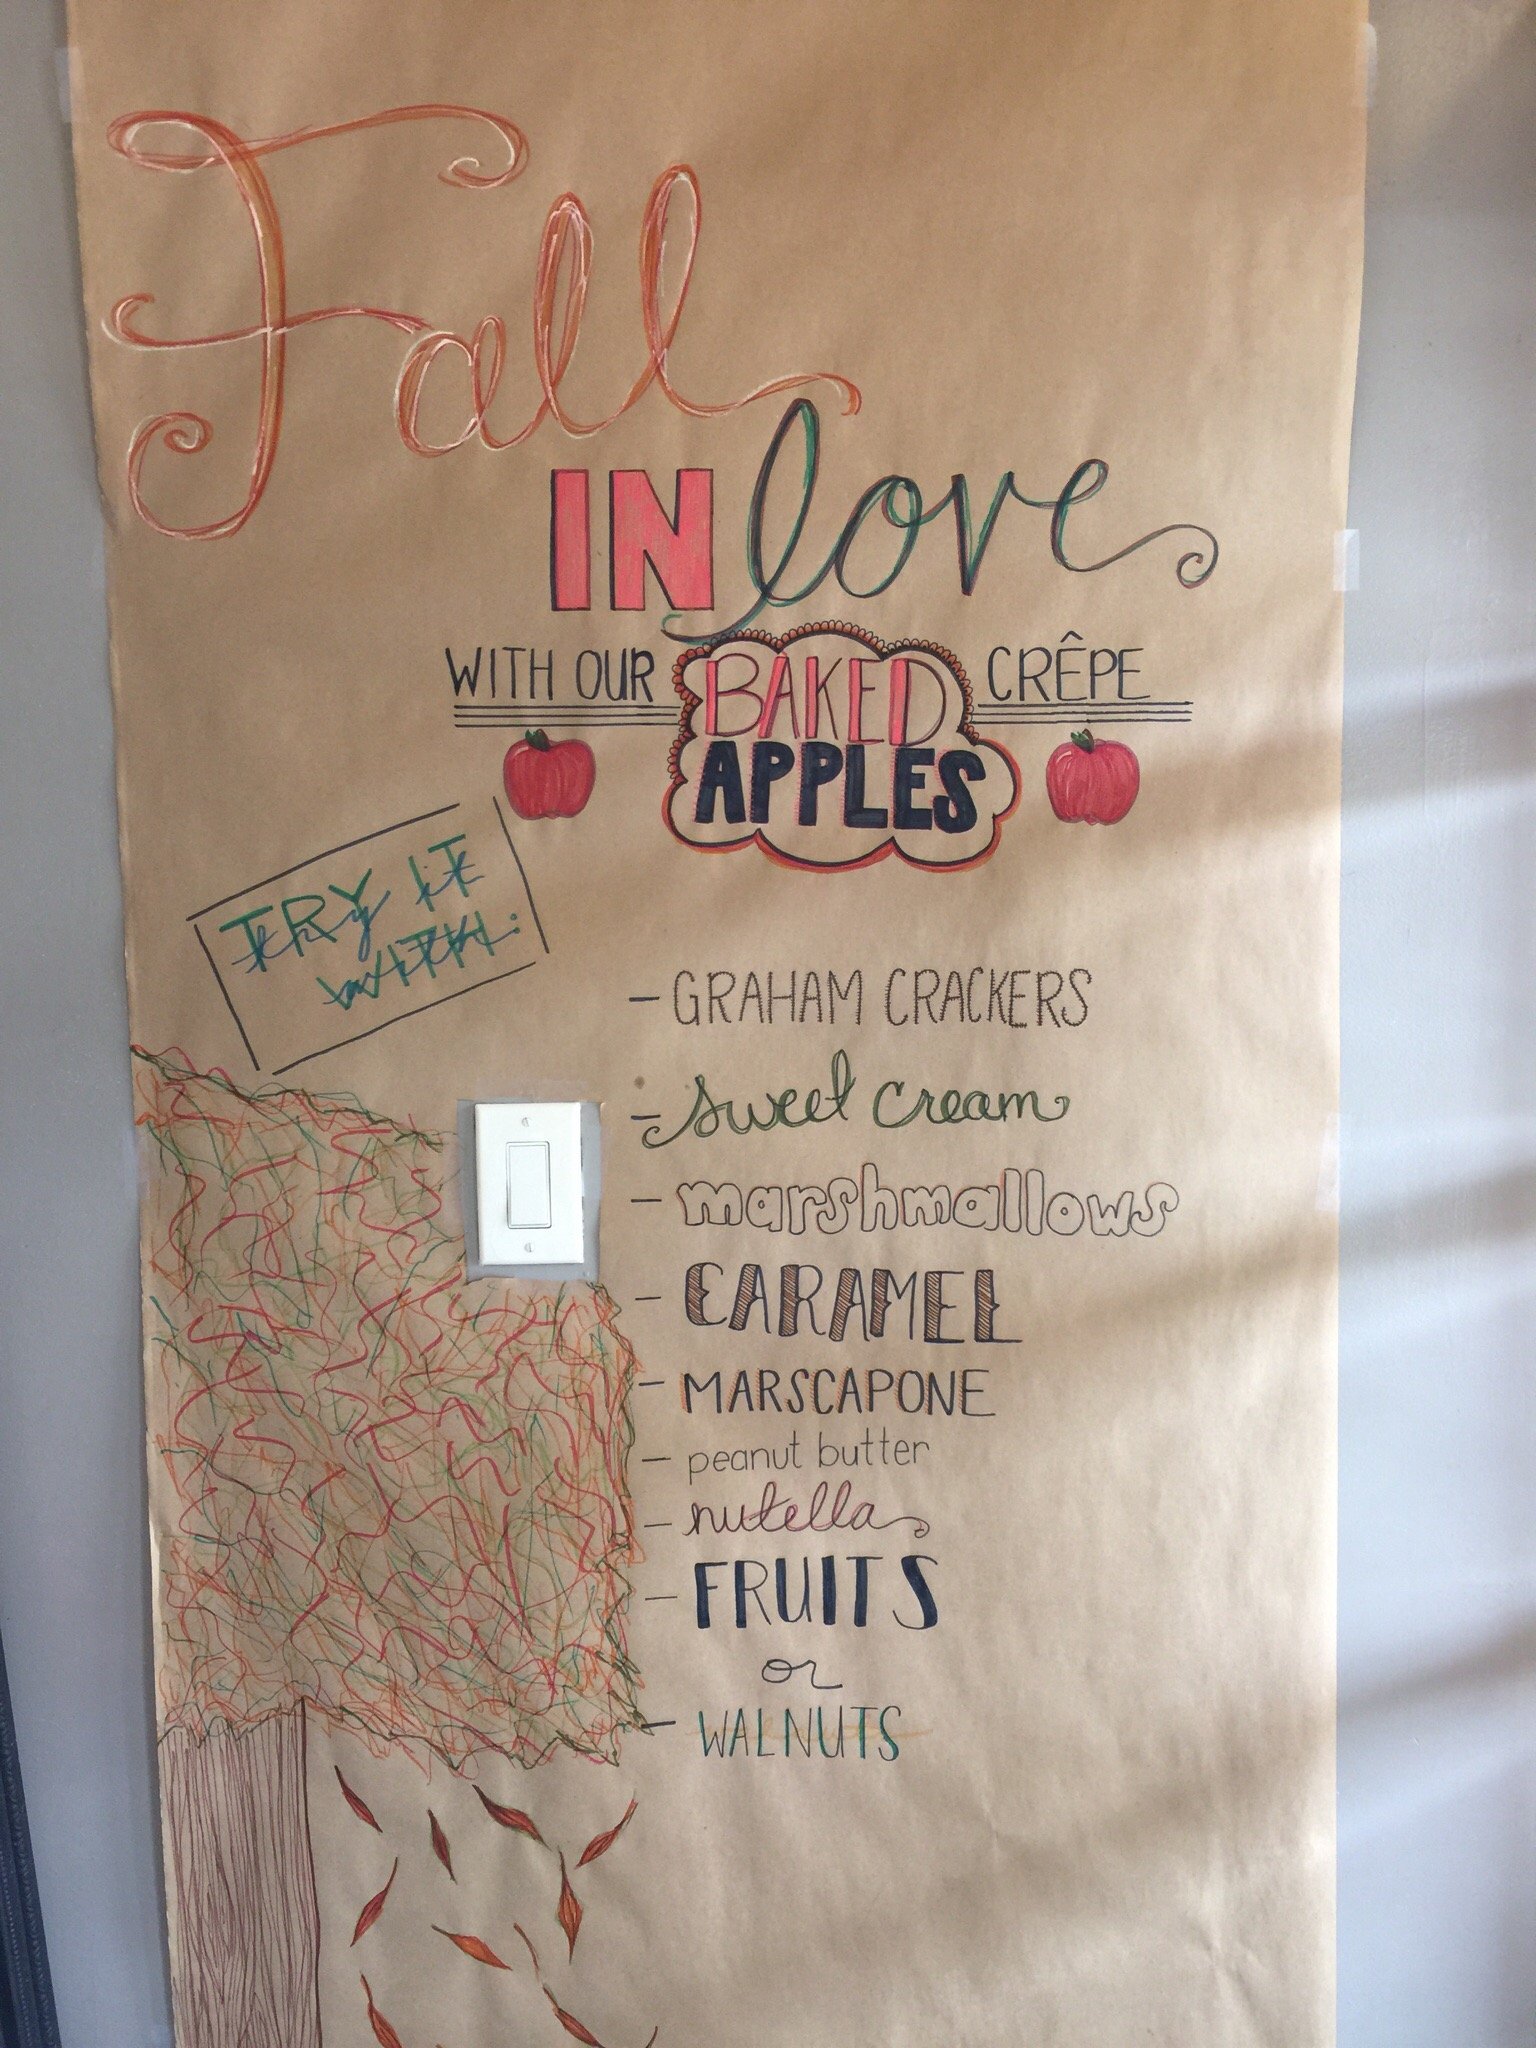 Fall
IN love
WITH OUR BAKED APPLES CRÊPE
TRY IT
WITH:
- GRAHAM CRACKERS
- sweet cream
- marshmallows
- CARAMEL
- MARSCAPONE
- peanut butter
- nutella
- FRUITS
or
- WALNUTS